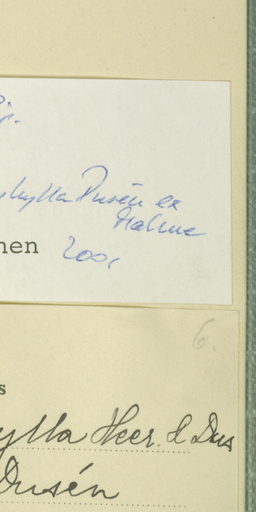 phylla Dusén ex
Malme
hen 2001
6.
s
ylla Heer. & Dus
Dusén